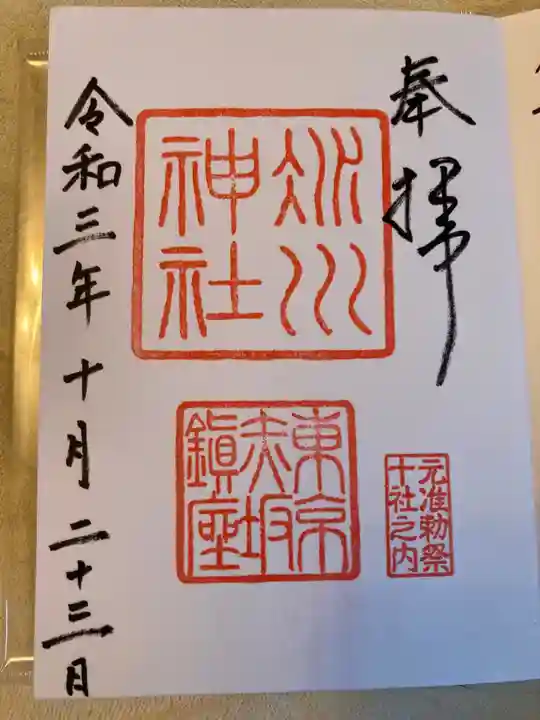 奉拝
氷川
神社
東京
赤坂
鎮座
元准勅祭
十社之内
令和三年十月二十三日